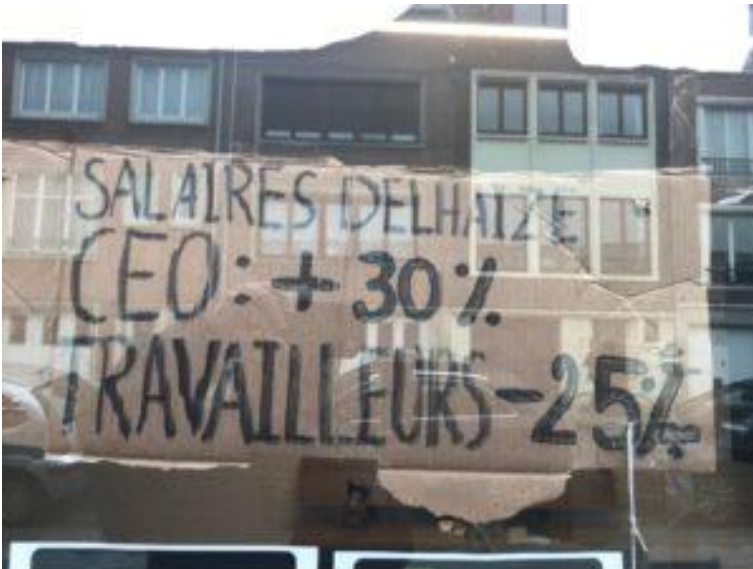 SALAIRES DELHAIZE
CEO: + 30%
TRAVAILLEURS -25%